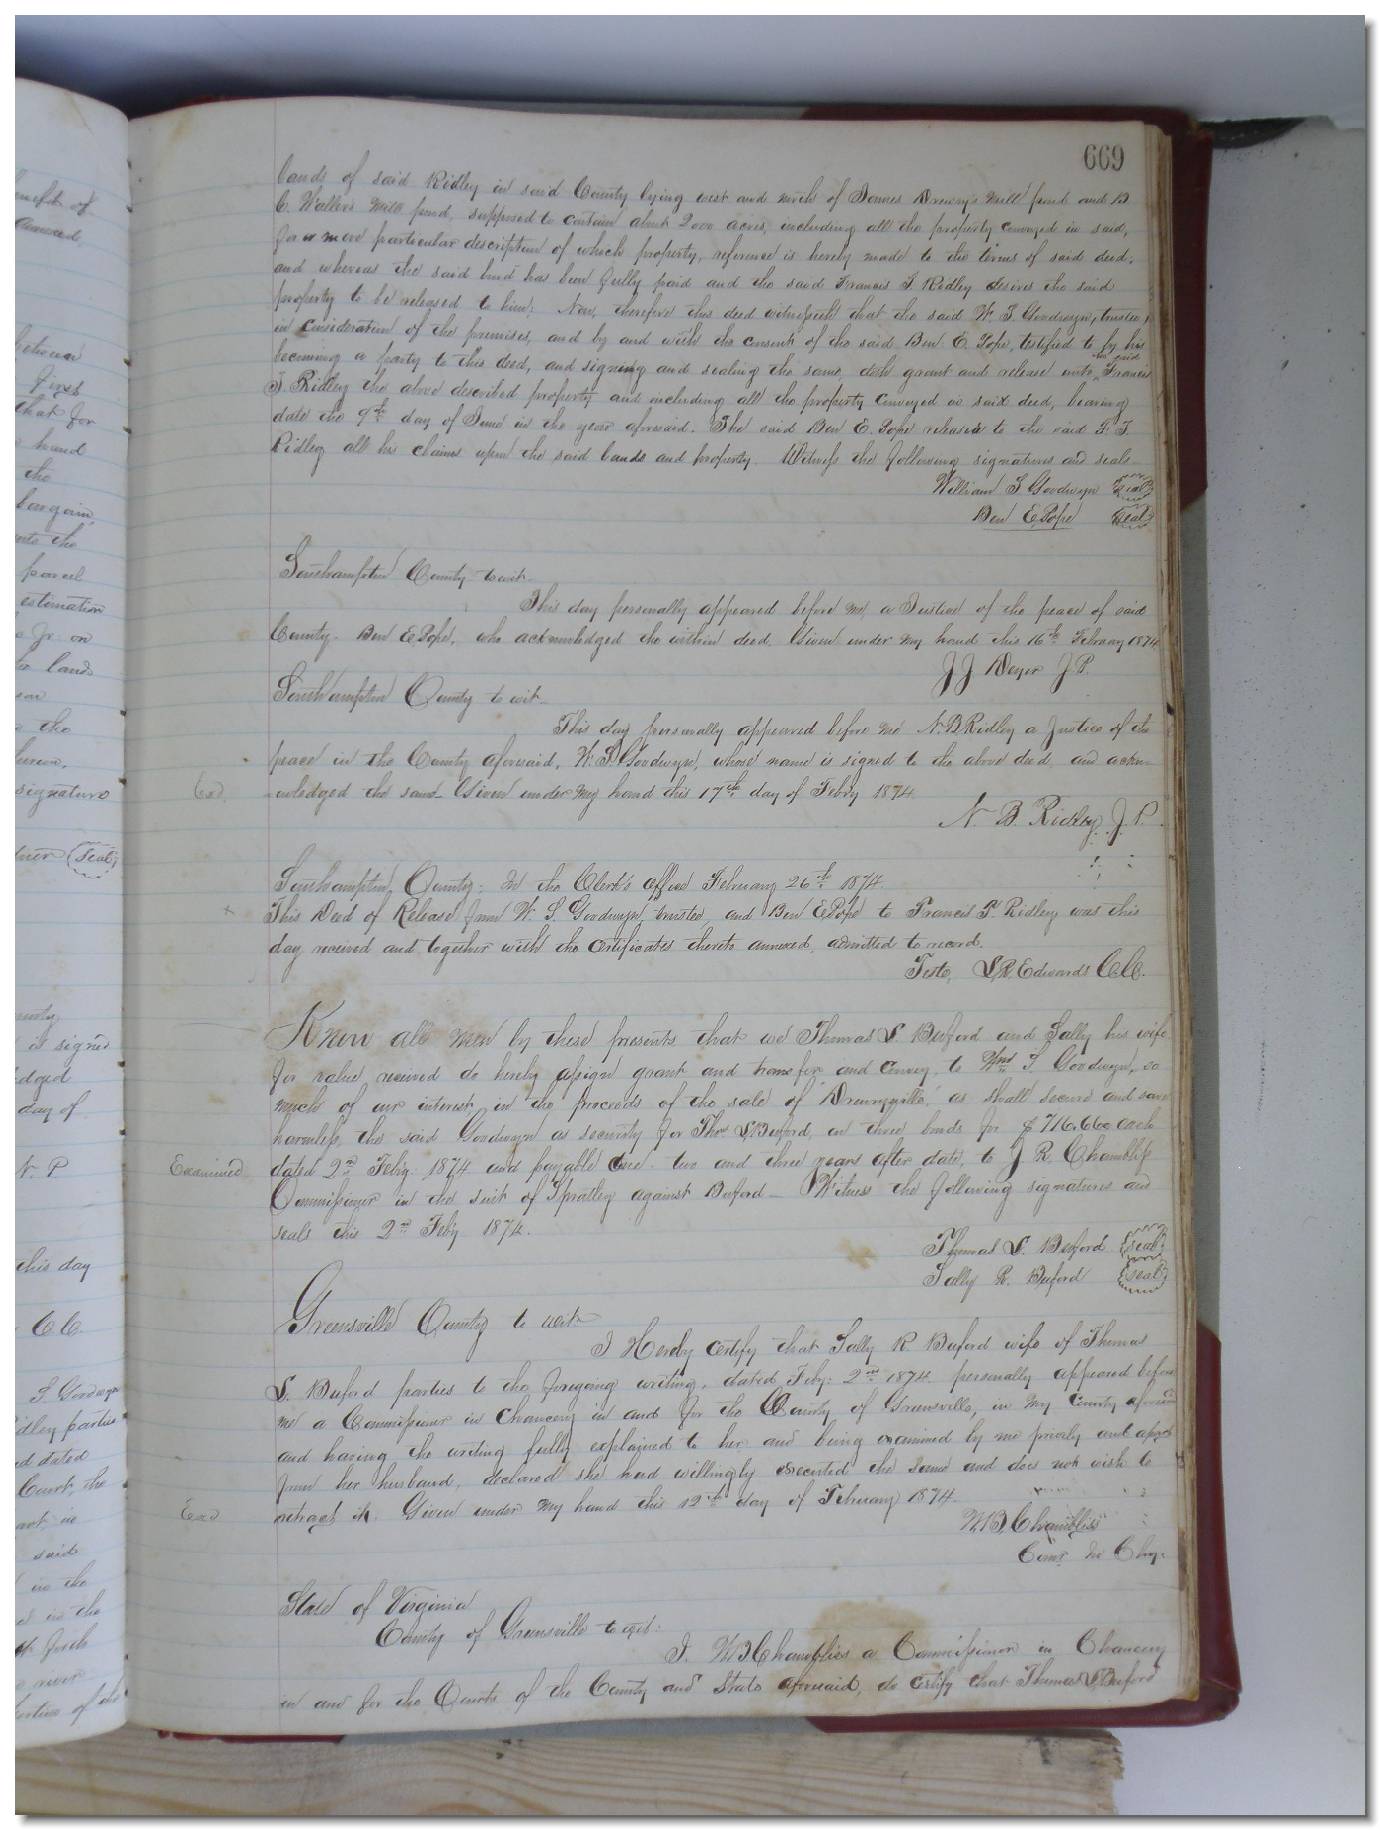 669
lands of said Ridley in said County lying west and north of James Drewry's mill pond and B
C. Waller's Mill pond, supposed to contain about 2000 acres, including all the property conveyed in said,
for a more particular description of which property, reference is hereby made to the terms of said deed.
and whereas the said bond has been fully paid and the said Francis T. Ridley desires the said
property to be released to him: Now, therefore this deed witnesseth that the said W. S. Goodwyn, trustee,
in consideration of the premises, and by and with the consent of the said Ben E. Pope, testified to by his
becoming a party to this deed, and signing and sealing the same, doth grant and release unto the said Francis
T. Ridley the above described property and including all the property conveyed in said deed, bearing
date the 9th day of June in the year aforesaid. The said Ben E. Pope releases to the said F. T.
Ridley all his claims upon the said lands and property. Witness the following signatures and seals
William S Goodwyn Seal
Ben E Pope Seal
Southampton County to wit
This day personally appeared before me, a Justice of the peace of said
County. Ben E Pope, who acknowledged the within deed. Given under my hand this 16th February 1874
J J Deyer J.P.
Southampton County to wit
This day personally appeared before me N. B Ridley a Justice of the
peace in the County aforesaid, W. S. Goodwyn, whose name is signed to the above deed, and ackno-
Exd.
-wledged the same Given under my hand this 17th day of Febry 1874
N. B. Ridley J. P.
Southampton County: In the Clerk's office February 26th 1874.
This Deed of Release from W. S. Goodwyn, trustee, and Ben E Pope to Francis T. Ridley was this
day received and together with the certificates thereto annexed, admitted to record.
Teste, L R. Edwards C.C.
Know all men by these presents that we Thomas L. Buford and Sally his wife
for value received do hereby assign grant and transfer and convey to Wm S. Goodwyn, so
much of our interest in the proceeds of the sale of "Drewryville," as shall secure and save
harmless, the said Goodwyn as security for Thos L Buford, in three bonds for $716.66⅔ each
Examined
dated 2nd Feby. 1874 and payable one. two and three years after date, to J R. Chambliss
Commissioner in the suit of Spratley against Buford — Witness the following signatures and
seals this 2nd Feby 1874.
Thomas L. Buford seal
Sally R. Buford seal
Greensville County to wit
I Hereby certify that Sally R Buford wife of Thomas
L. Buford parties to the foregoing writing, dated Feby: 2nd 1874. personally appeared before
me a Commissioner in Chancery in and for the County of Greensville, in my County aforesaid
and having the writing fully explained to her and being examined by me privily and apart
from her husband, declared she had willingly executed the same and does not wish to
Exd
retract it. Given under my hand this 12th day of February 1874.
W. B. Chambliss
Comr in Chy.
State of Virginia
County of Greensville to wit:
I. W B Chambliss a Commissioner in Chancery
in and for the Courts of the County and State aforesaid, do certify that Thomas L Buford